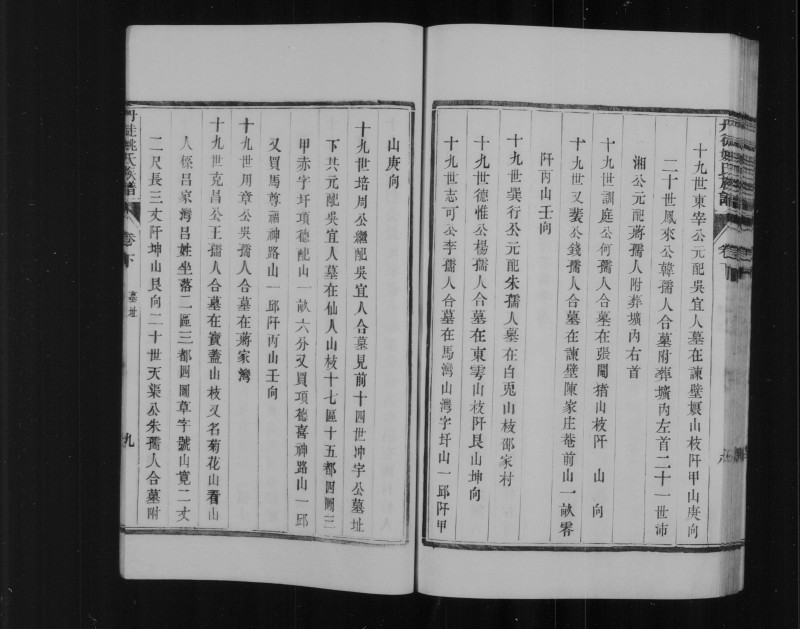 十九世東宰公元配吳宜人墓在諫壁嬽山枝阡甲山庚向
二十世鳳來公韓孺人合墓附葬壙內左首二十一世沛
湘公元配蔣孺人附葬壙內右首
十九世訓庭公何孺人合墓在張閘猪山枝阡 山 向
十九世又裴公錢孺人合墓在諫壁陳家庄菴前山一畝零
阡丙山壬向
十九世巽行公元配朱孺人墓在白兎山枝邵家村
十九世德惟公楊孺人合墓在東雩山枝阡艮山坤向
十九世志可公李孺人合墓在馬灣山灣字圩山一邱阡甲
山庚向
十九世培周公繼配吳宜人合墓見前十四世冲宇公墓址
下共元配吳宜人墓在仙人山枝十七區十五都四圖三
甲赤字圩項德配山一畝六分又買項德喜神路山一邱
又買馬尊福神路山一邱阡丙山壬向
十九世用章公吳孺人合墓在蔣家灣
十九世克昌公王孺人合墓在寶蓋山枝又名菊花山看山
人係呂家灣呂姓坐落二區三都四圖草字號山寬二丈
二尺長三丈阡坤山艮向二十世天渠公朱孺人合墓附
丹徒姚氏族譜 卷下 墓址 九